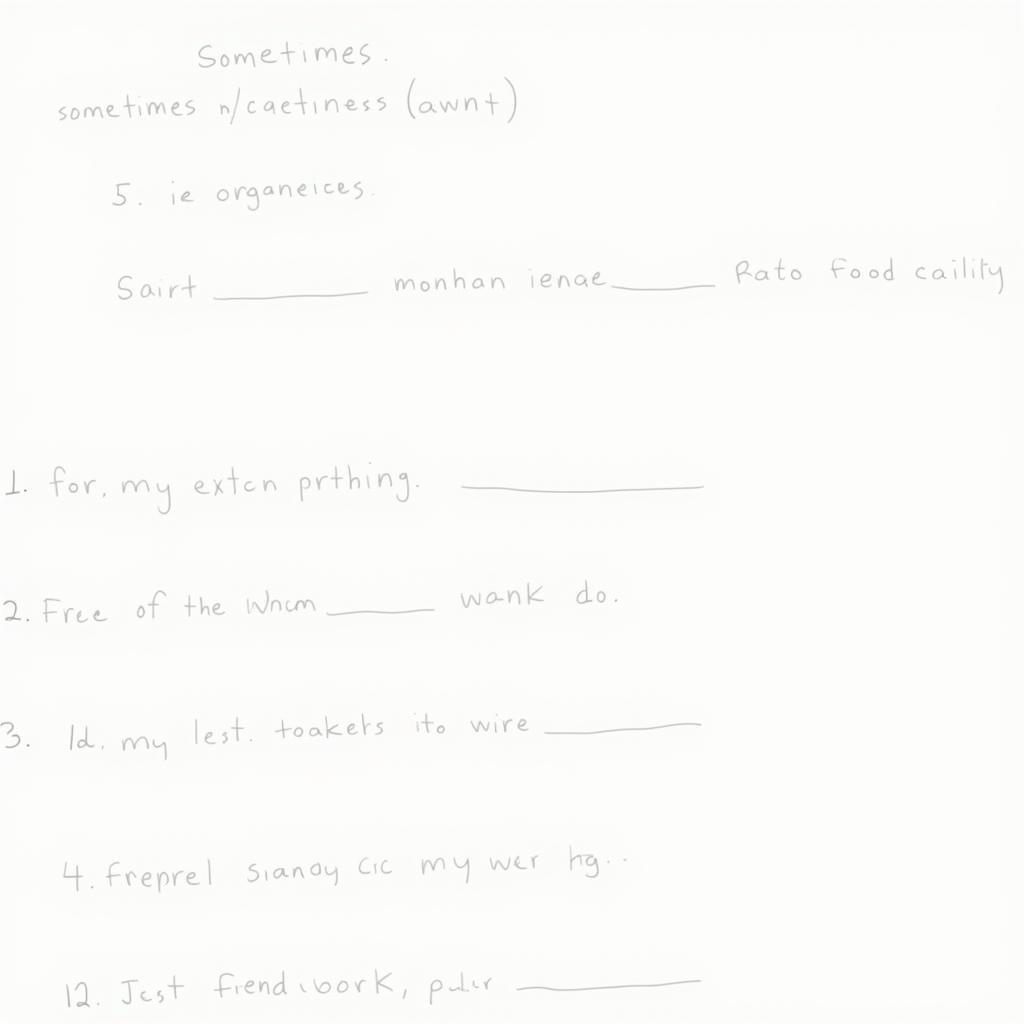 Sometimes.
sometimes n/caetiness (awnt)
5. ie organeices.
Sairt ______ monhan ienae ______ Rato Food caility
1. for, my extcn prthing. ______
2. Free of the Wncm ______ wank do.
3. Id. my lest. toakets ito wire ______
4. freprel sianoy cic my wer hg..
12. Jcst fiend work, ______